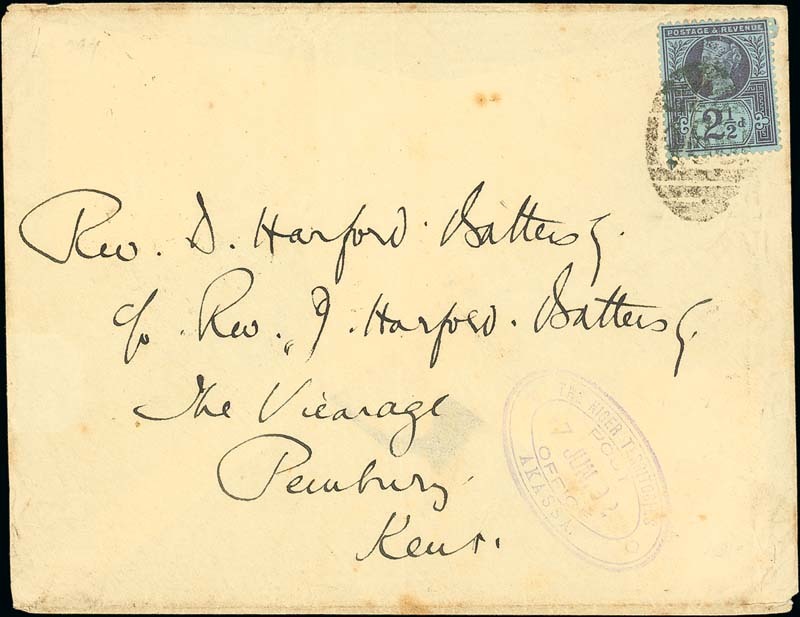 POSTAGE & REVENUE
2½d
Rev. D. Harford. Battersby.
c/o. Rev. J. Harford. Battersby.
The Vicarage
Pembury
Kent.
THE NIGER TERRITORIES
POST
7 JUN 92
OFFICE
AKASSA.